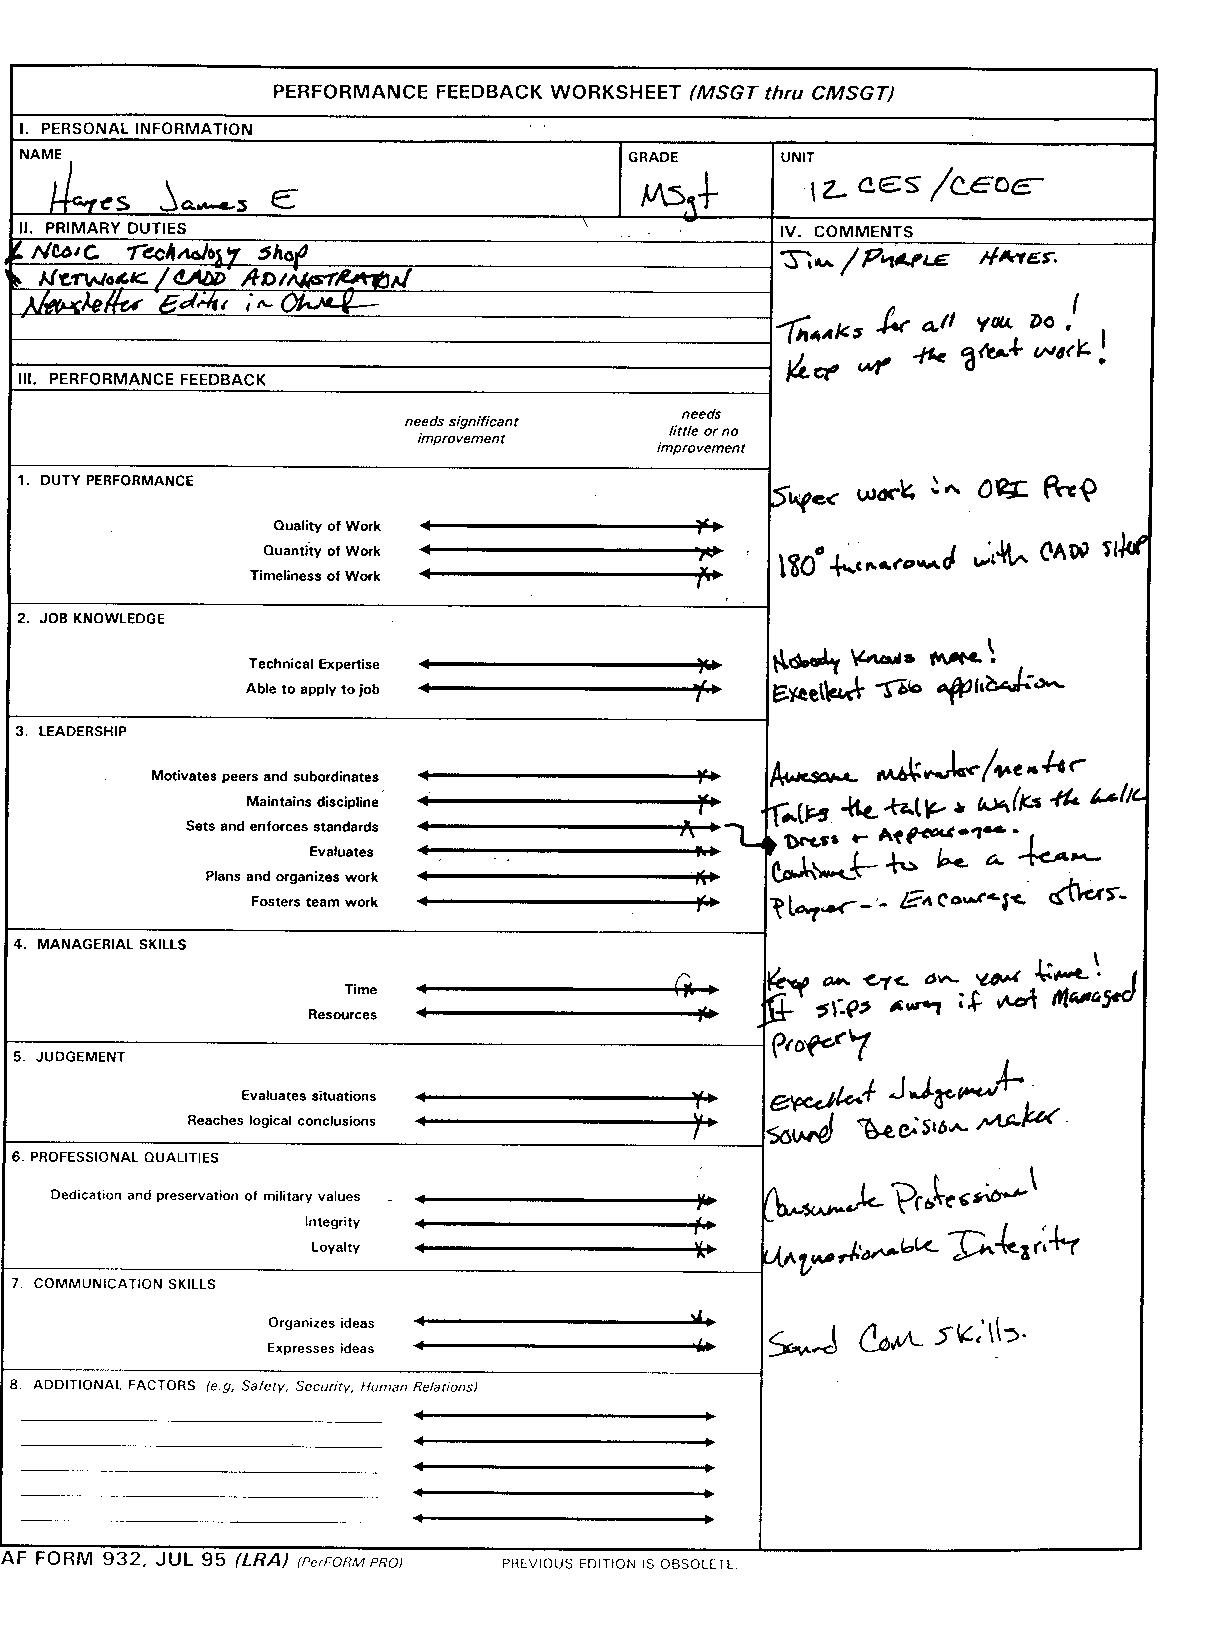 PERFORMANCE FEEDBACK WORKSHEET (MSGT thru CMSGT)
I. PERSONAL INFORMATION
NAME
GRADE
UNIT
Hayes James E
MSgt
12 CES/CEOE
II. PRIMARY DUTIES
NCOIC Technology Shop
NETWORK/CADD ADINISTRATION
Newsletter Editor in Chief
IV. COMMENTS
Jim/PURPLE HAYES.
Thanks for all you Do!
Keep up the great work!
III. PERFORMANCE FEEDBACK
needs significant
improvement
needs
little or no
improvement
1. DUTY PERFORMANCE
Super work in ORI Prep
Quality of Work
Quantity of Work
180° turnaround with CADD SHOP
Timeliness of Work
2. JOB KNOWLEDGE
Technical Expertise
Nobody Knows more!
Able to apply to job
Excellent Job application
3. LEADERSHIP
Motivates peers and subordinates
Awesome motivator/mentor
Maintains discipline
Talks the talk + walks the walk
Sets and enforces standards
Dress + Appearance.
Evaluates
to be a team
Plans and organizes work
Fosters team work
Player-- Encourage others.
4. MANAGERIAL SKILLS
Time
Keep an eye on your time!
Resources
It slips away if not Managed
Properly
5. JUDGEMENT
Evaluates situations
Excellent Judgement
Reaches logical conclusions
Sound Decision Maker.
6. PROFESSIONAL QUALITIES
Dedication and preservation of military values
Consumate Professional
Integrity
Loyalty
Unquestionable Integrity
7. COMMUNICATION SKILLS
Organizes ideas
Expresses ideas
Sound Com Skills.
8. ADDITIONAL FACTORS (e.g, Safety, Security, Human Relations)
AF FORM 932, JUL 95 (LRA) (PerFORM PRO)
PREVIOUS EDITION IS OBSOLETE.